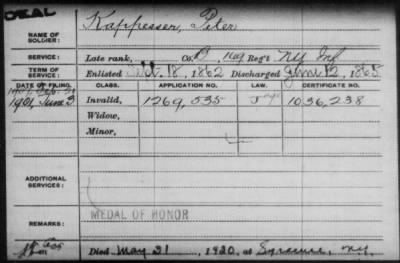 DEAL
Kappesser, Peter
NAME OF SOLDIER:
SERVICE: Late rank, Co. B, 149 Reg't NY Inf
TERM OF SERVICE: Enlisted Sept. 18, 1862 Discharged June 12, 1865
DATE OF FILING. CLASS. APPLICATION NO. LAW. CERTIFICATE NO.
1901, June 3 Invalid, 1269,535 1036,238
Widow,
Minor,
ADDITIONAL SERVICES:
MEDAL OF HONOR
REMARKS:
Died May 31, 1920, at Syracuse, N.Y.